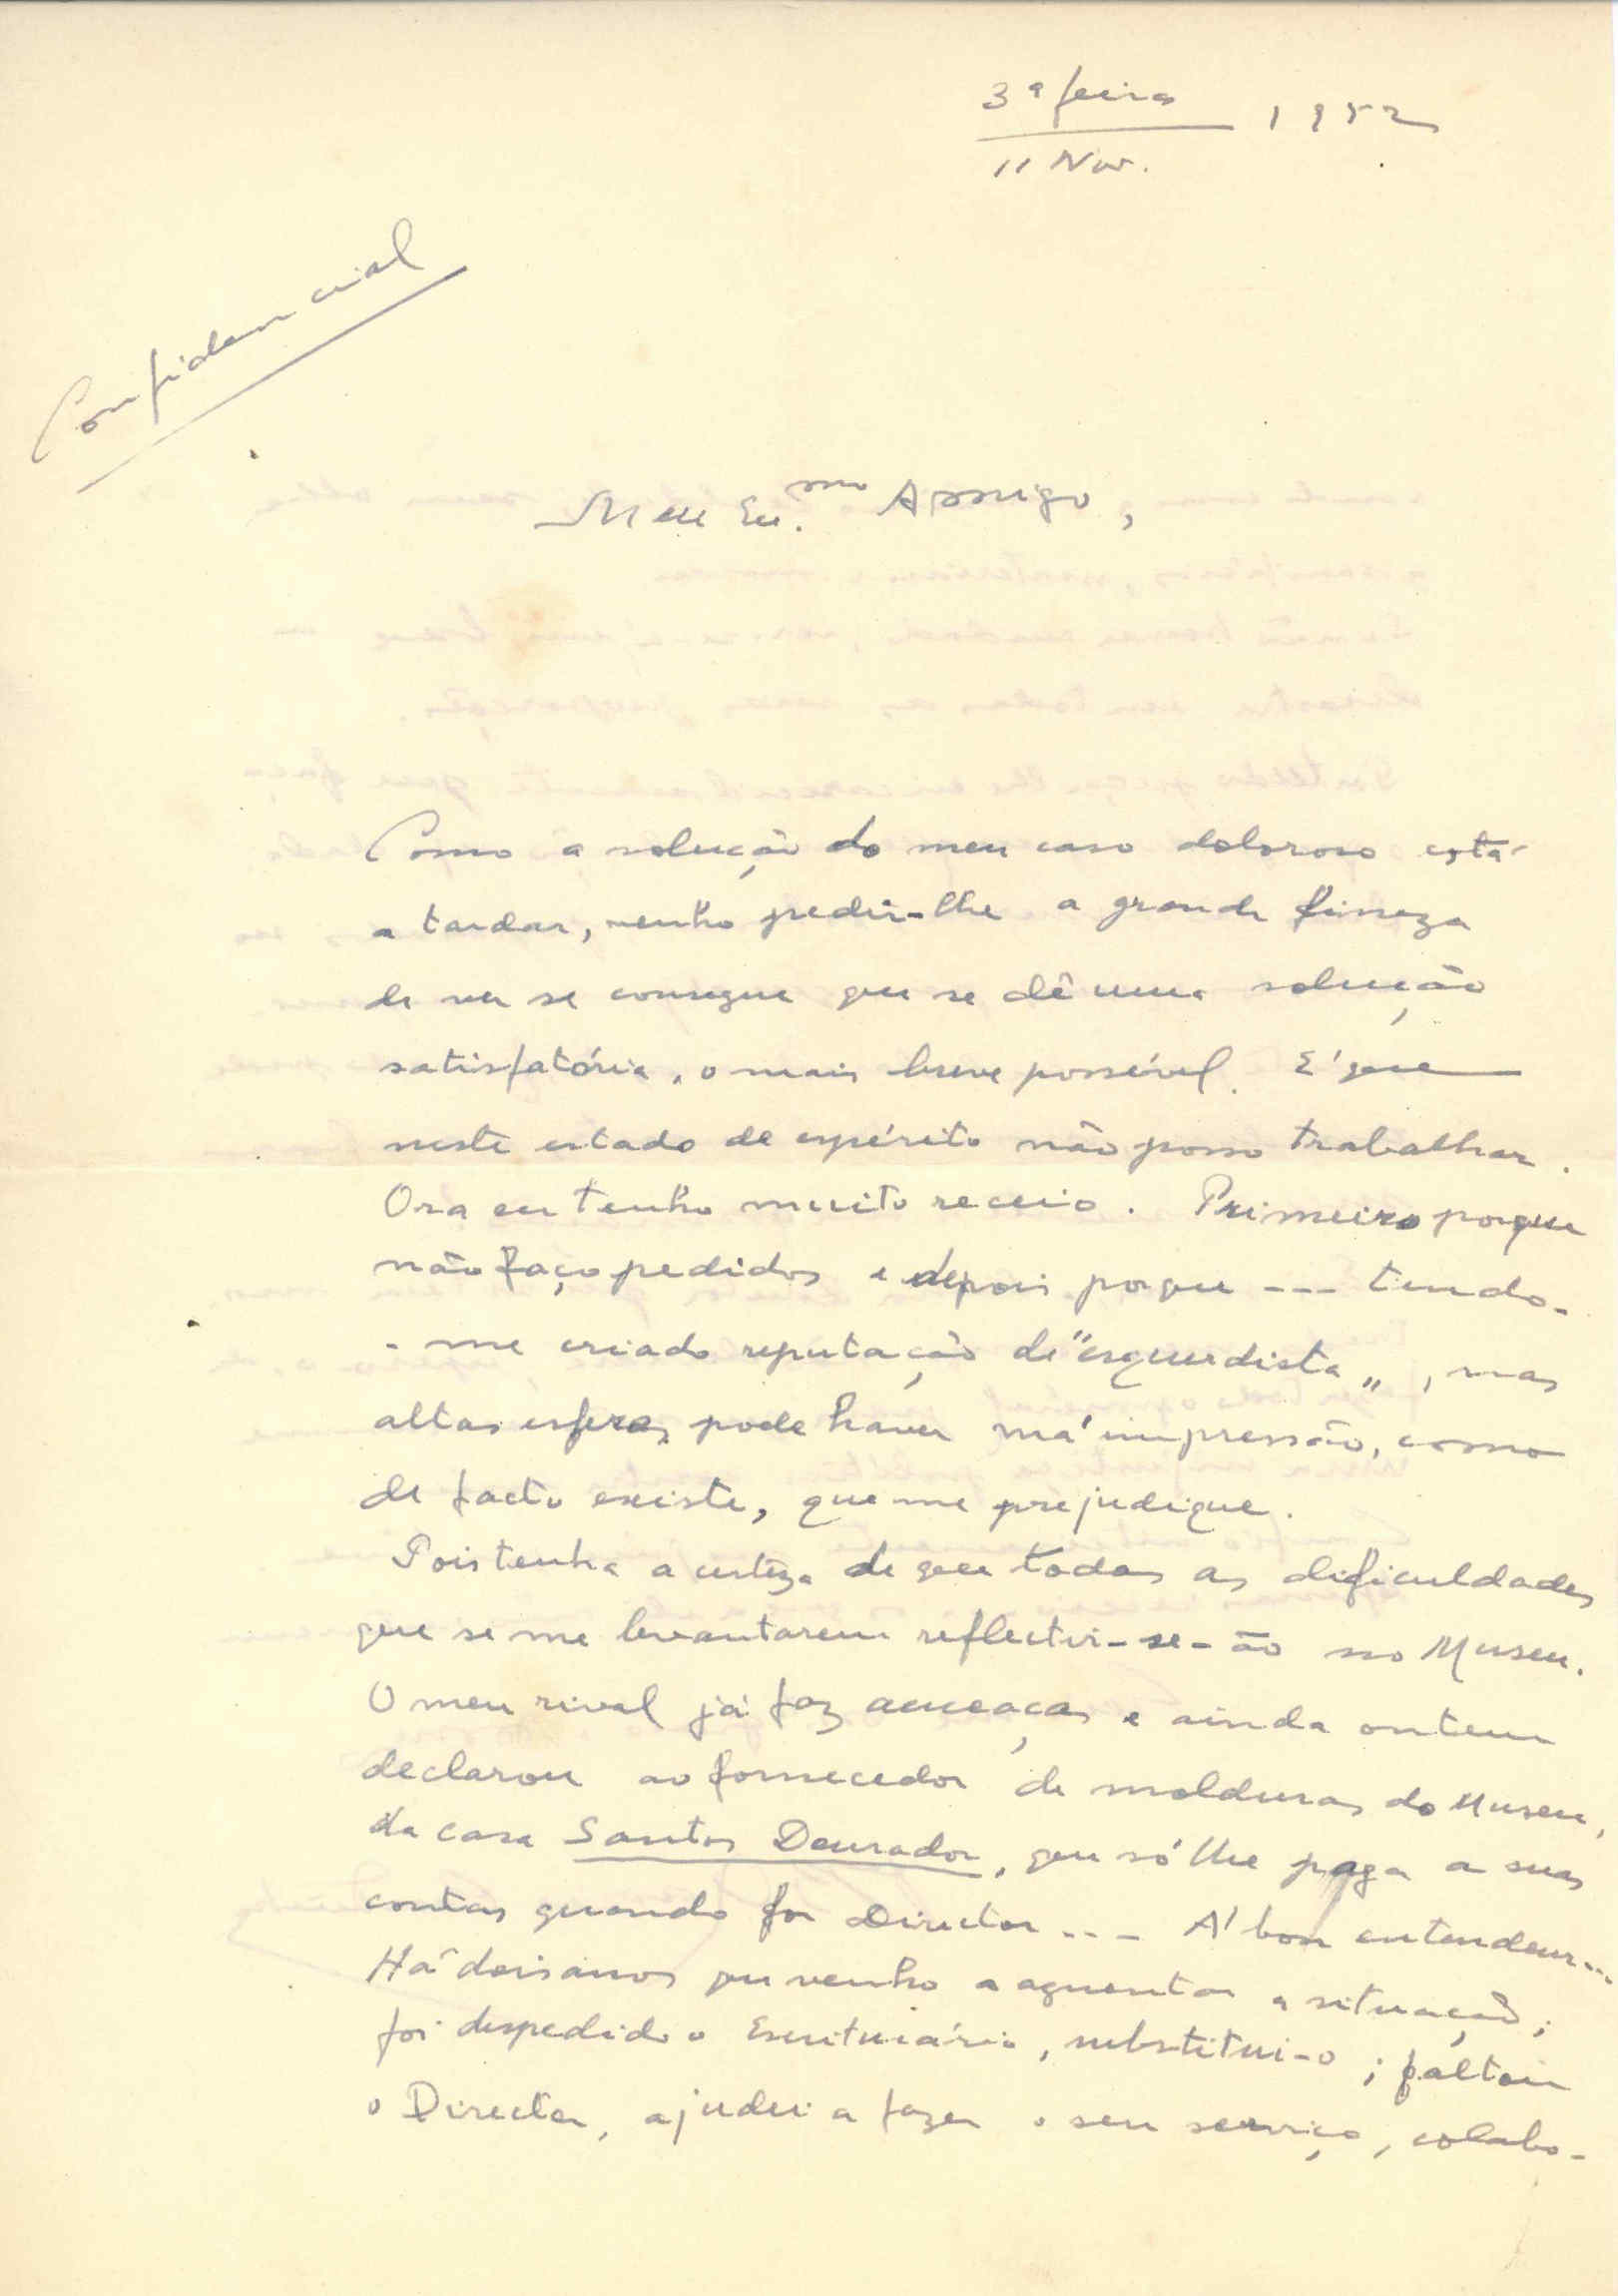 3ª feira 1952
11 Nov.
Confidencial
Meu Ex.mo Amigo,
Como a solução do meu caso doloroso está
a tardar, venho pedir-lhe a grande fineza
de ver se consegue que se dê uma solução
satisfatória, o mais breve possível. É que
neste estado de espírito não posso trabalhar.
Ora eu tenho muito receio. Primeiro porque
não faço pedidos e depois porque --- tendo-
-me criado reputação de "esquerdista", nas
altas esferas pode haver má impressão, como
de facto existe, que me prejudique.
Pois tenha a certeza de que todas as dificuldades
que se me levantarem reflectir-se-ão no Museu.
O meu rival já faz ameaças e ainda ontem
declarou ao fornecedor de molduras do Museu,
da casa Santos Dourador, que só lhe paga a suas
contas quando for Director... A' bon entendeur...
Há dois anos que venho a aguentar a situação;
foi despedido o Escriturário, substitui-o; faltou
o Director, ajudei a fazer o seu serviço, colabo-